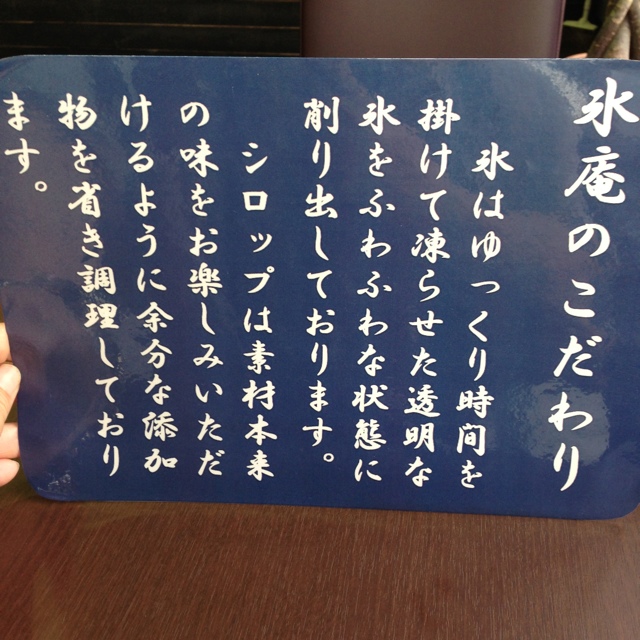 氷庵のこだわり
氷はゆっくり時間を
掛けて凍らせた透明な
氷をふわふわな状態に
削り出しております。
シロップは素材本来
の味をお楽しみいただ
けるように余分な添加
物を省き調理しており
ます。